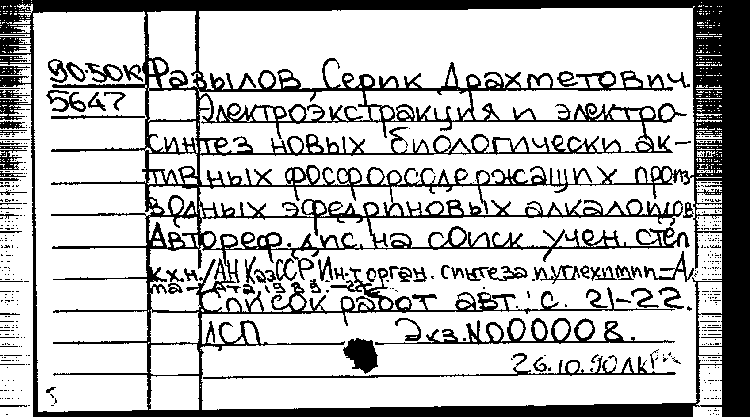 90-50к Фазылов Серик Драхметович.
5647 Электроэкстракция и электро-
синтез новых биологически ак-
тивных фосфорсодержащих произ-
водных эфедриновых алкалоидов
Автореф. дис. на соиск. учен. степ
к.х.н. /АН КазССР Ин-т орган. синтеза и углехимии.-Ал
ма-Ата, 1989.-22с.
Список работ авт.: с. 21-22.
ДСП. Экз.N000008.
26.10.90